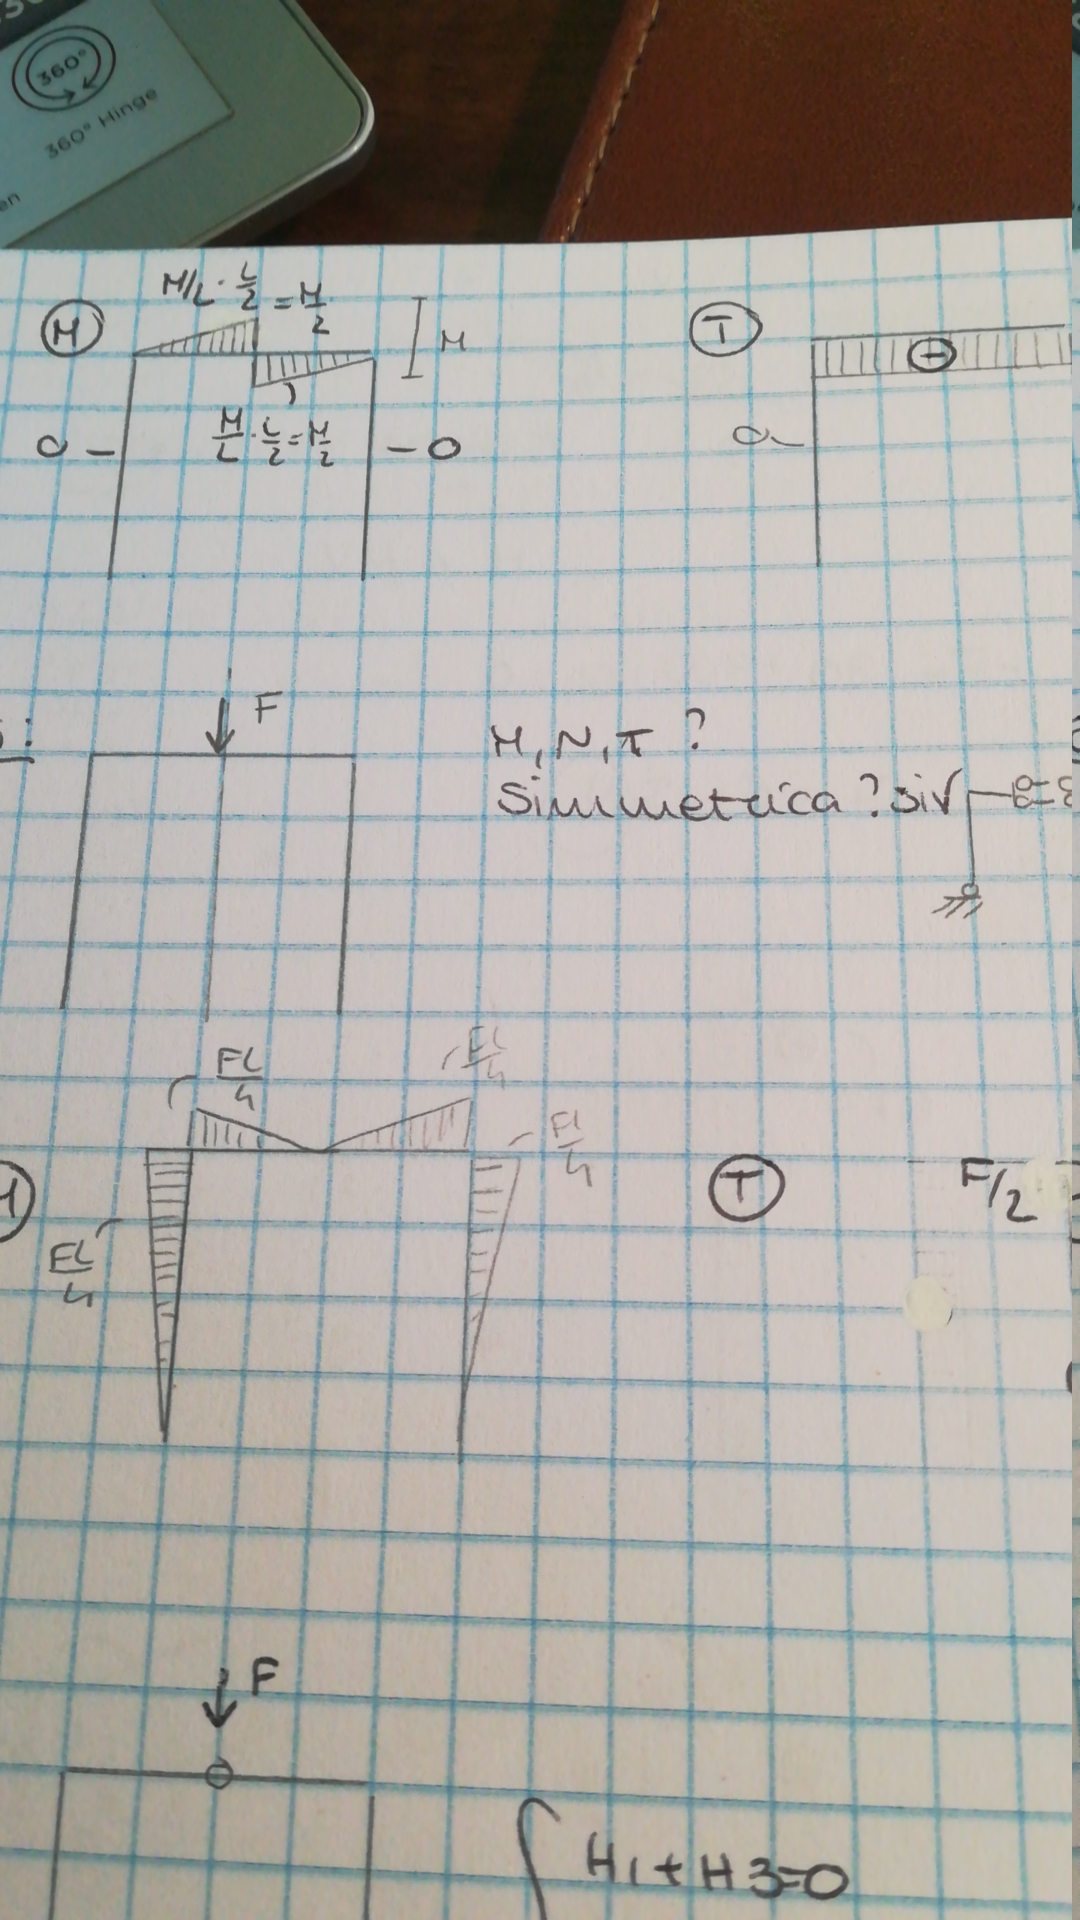 360°
360° Hinge
en
M/L · L/2 = M/2
M
M
T
0
M/L · L/2 = M/2
0
0
F
M, N, T ?
Simmetrica ? si√
FL/4
FL/4
FL/4
T
F/2
FL/4
F
H1 + H3=0